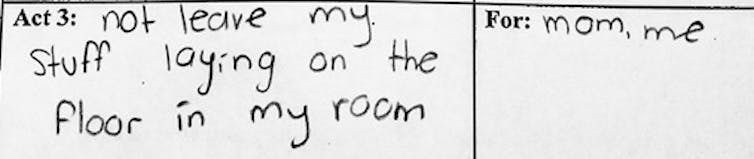 Act 3: not leave my
stuff laying on the
floor in my room
For: mom, me